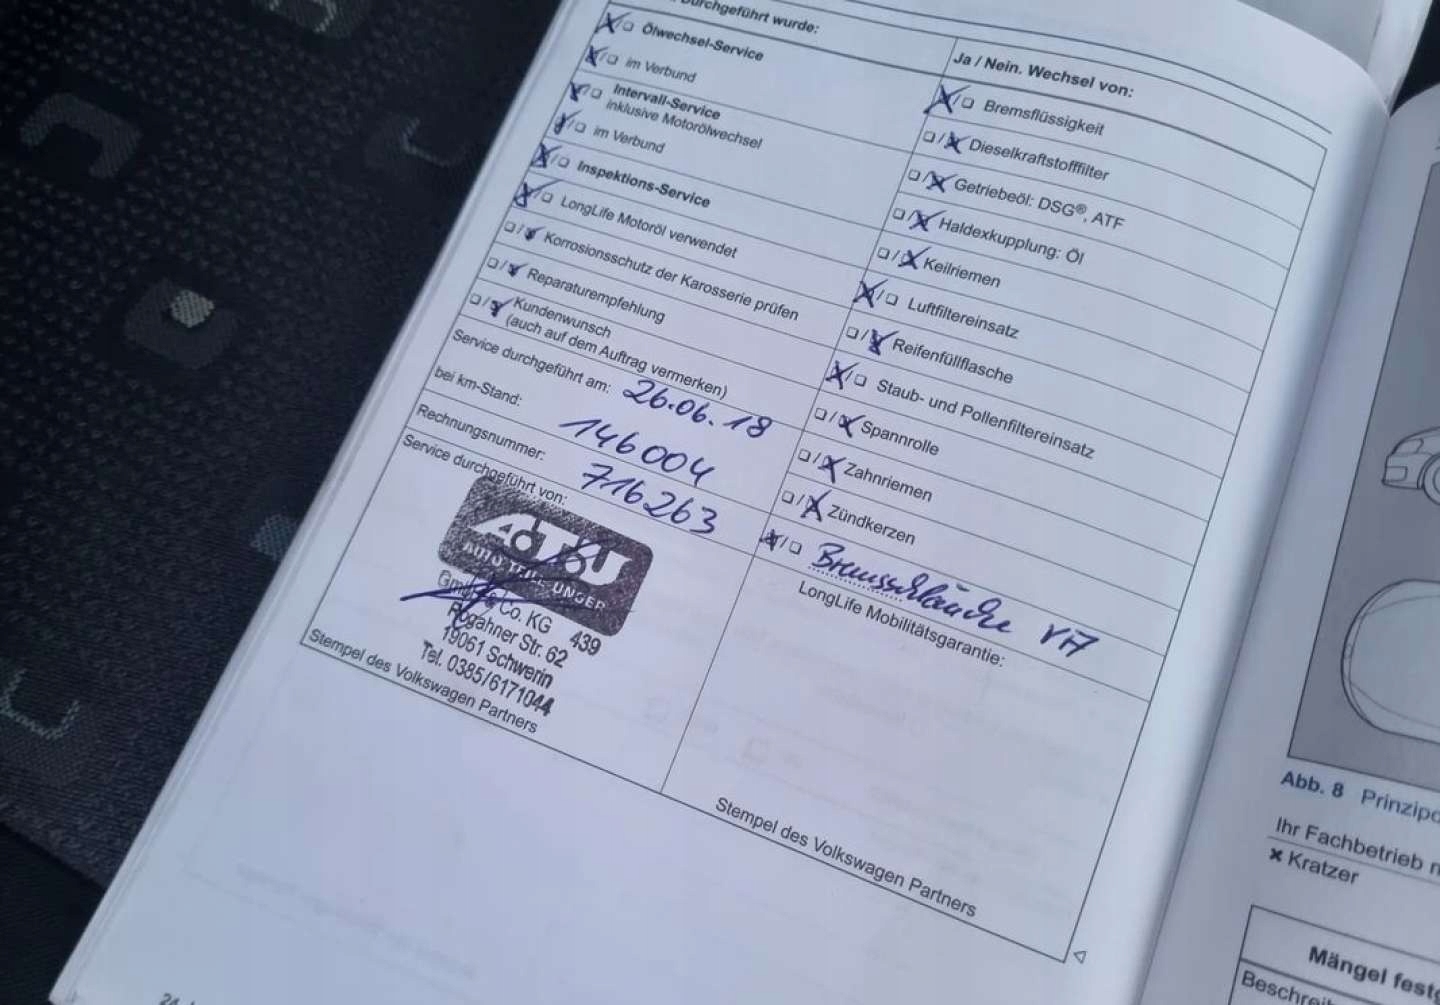 Durchgeführt wurde:
☒/❏ Ölwechsel-Service
☒/❏ im Verbund
☒/❏ Intervall-Service
inklusive Motorölwechsel
☒/❏ im Verbund
☒/❏ Inspektions-Service
☒/❏ LongLife Motoröl verwendet
❏/☒ Korrosionsschutz der Karosserie prüfen
❏/☒ Reparaturempfehlung
❏/☒ Kundenwunsch
(auch auf dem Auftrag vermerken)
Service durchgeführt am: 26.06.18
bei km-Stand: 146004
Rechnungsnummer: 716263
Service durchgeführt von:
AUTO-TEILE-UNGER
GmbH & Co. KG 439
Rogahner Str. 62
19061 Schwerin
Tel. 0385/6171044
Stempel des Volkswagen Partners
Ja / Nein. Wechsel von:
☒/❏ Bremsflüssigkeit
❏/☒ Dieselkraftstofffilter
❏/☒ Getriebeöl: DSG®, ATF
❏/☒ Haldexkupplung: Öl
❏/☒ Keilriemen
☒/❏ Luftfiltereinsatz
❏/☒ Reifenfüllflasche
☒/❏ Staub- und Pollenfiltereinsatz
❏/☒ Spannrolle
❏/☒ Zahnriemen
❏/☒ Zündkerzen
☒/❏ Bremsschläuche
LongLife Mobilitätsgarantie:
Stempel des Volkswagen Partners
Abb. 8
Ihr Fachbetrieb
✖ Kratzer
Mängel